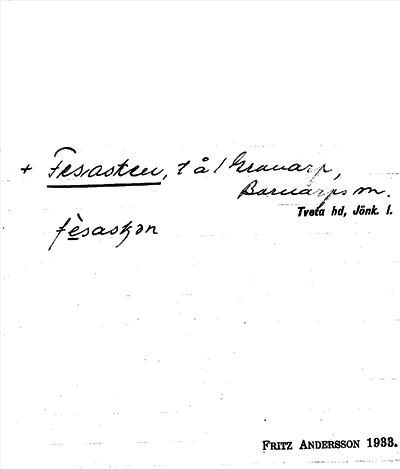 + Fesasken, t å 1 Granarp,
Barnarps sn.
Tveta hd, Jönk. l.
fèsaskən
FRITZ ANDERSSON 1933.